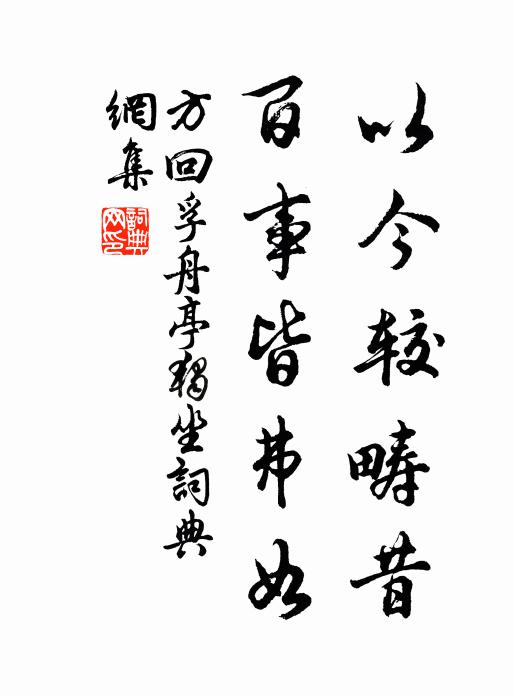 以今較疇昔
百事皆弗如
方回孚舟亭獨坐詞典
網集
詞典網印